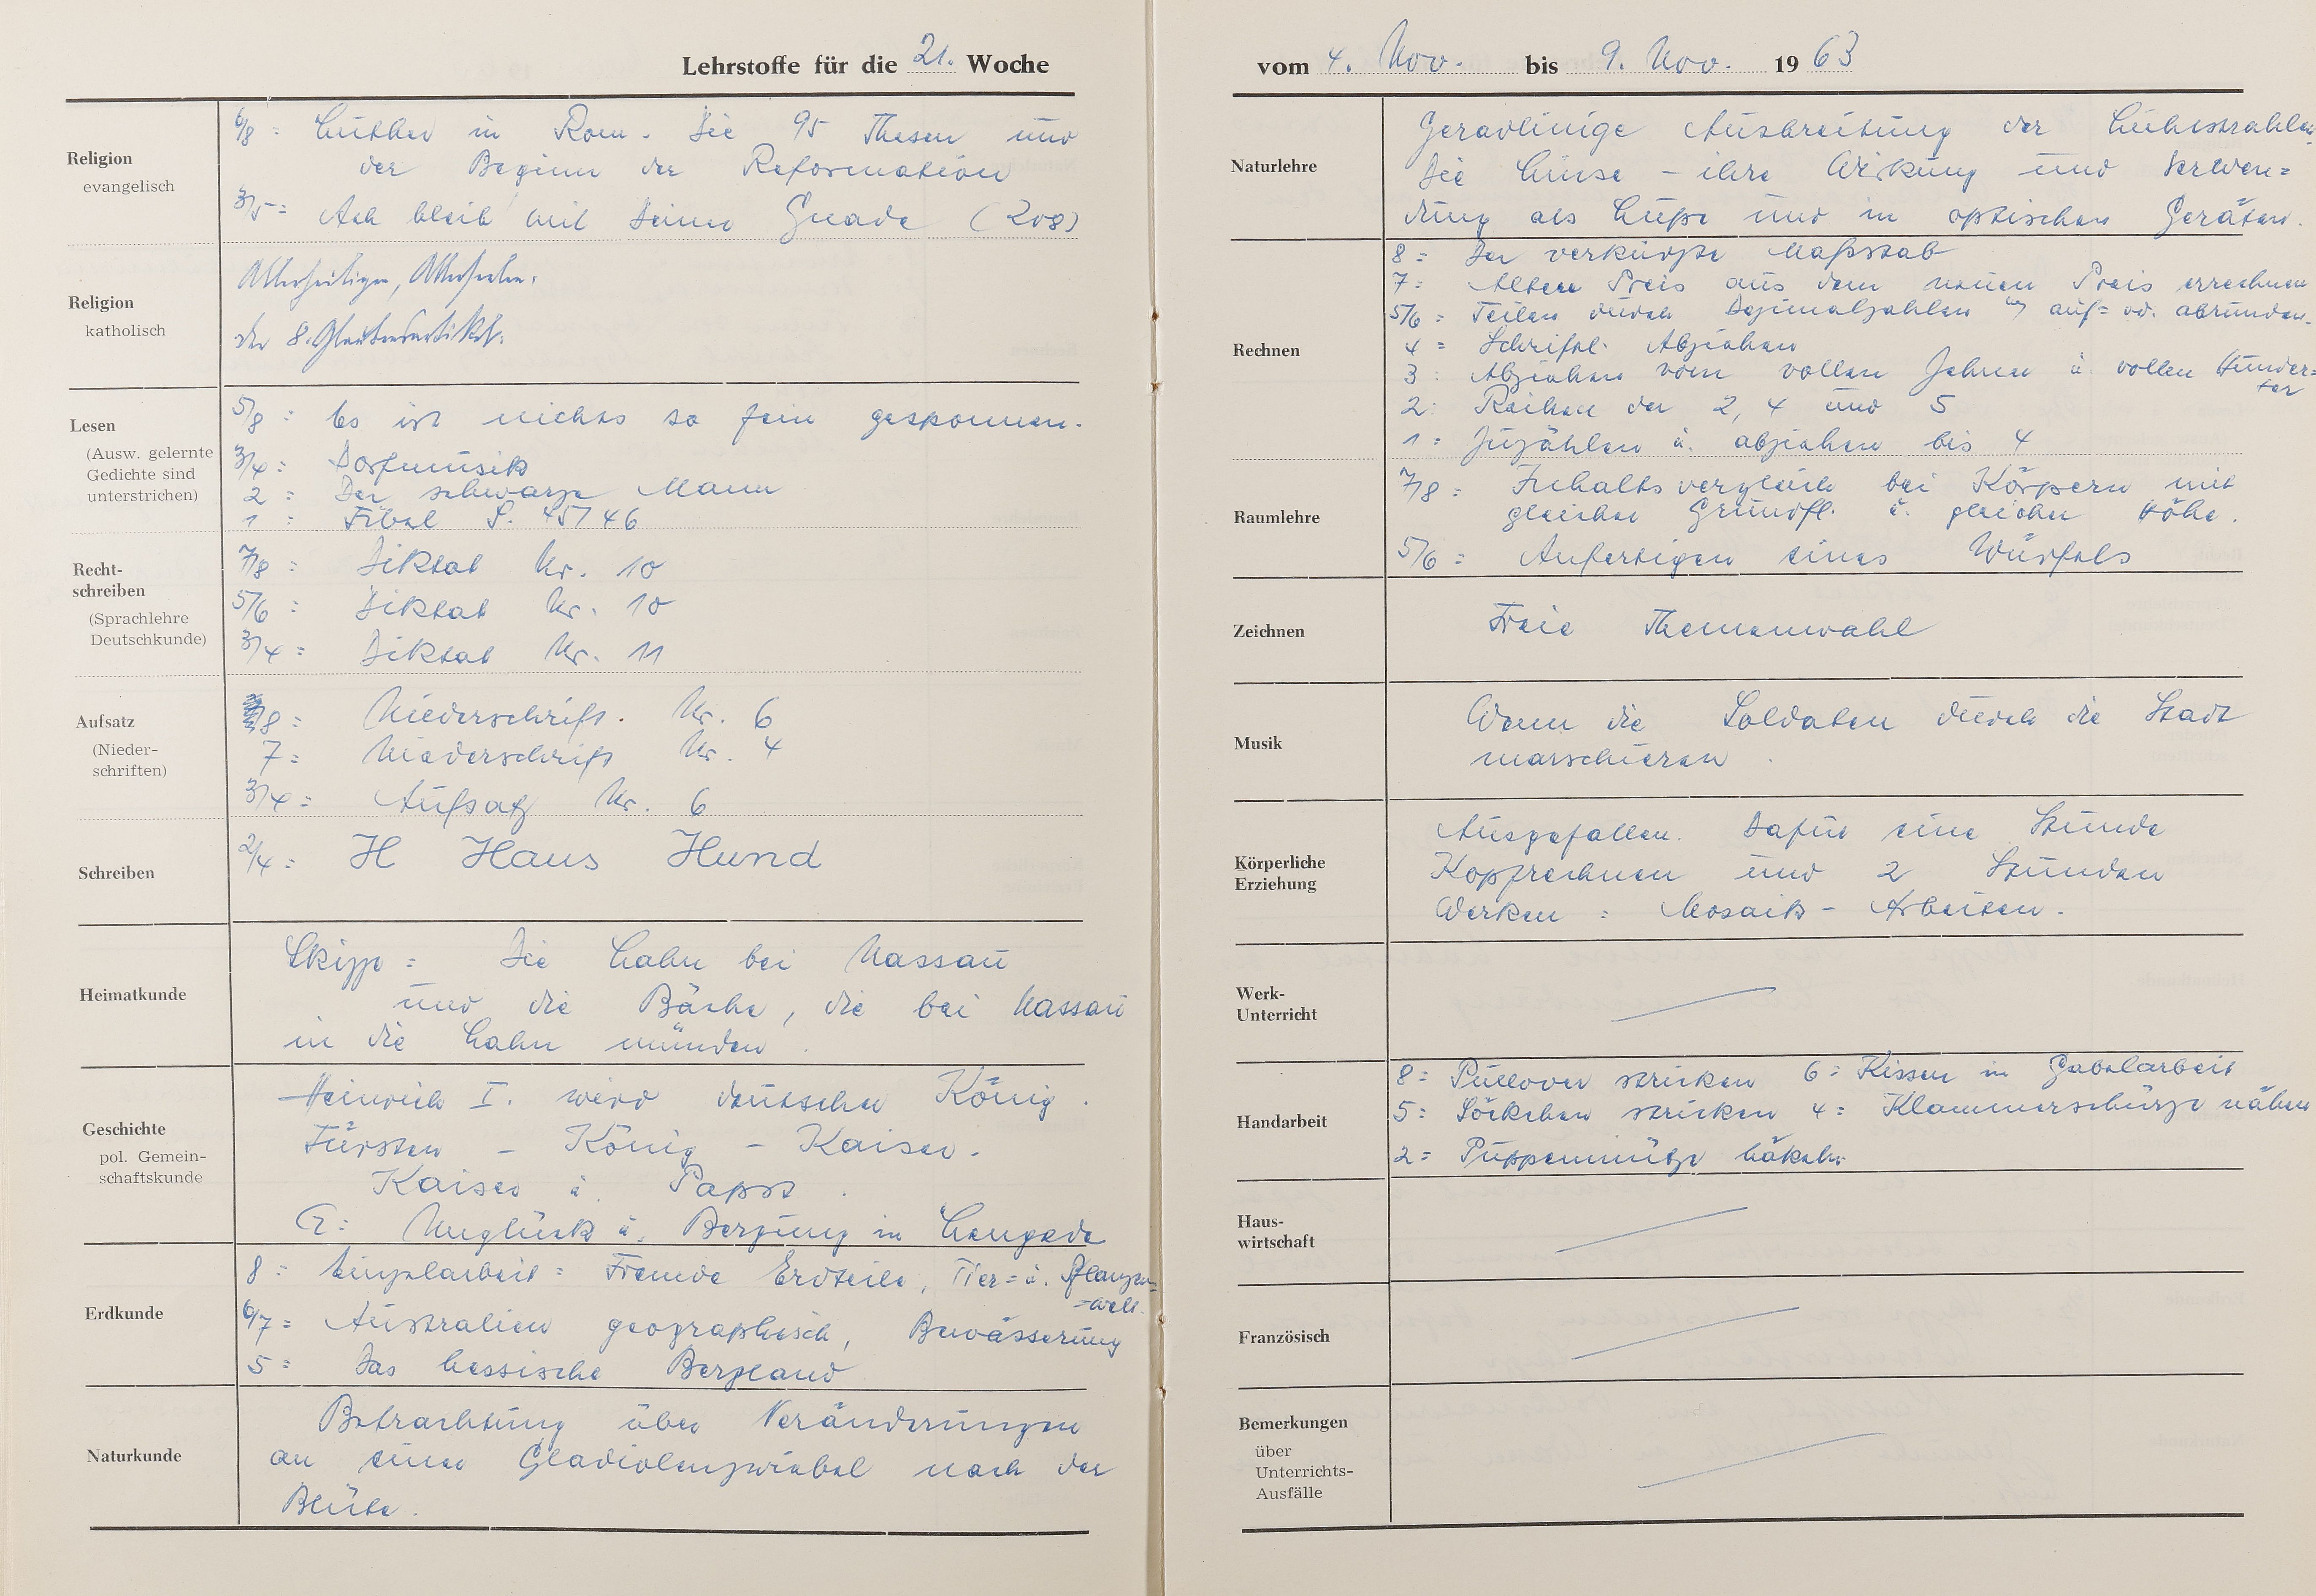 Lehrstoffe für die 21. Woche
Religion
evangelisch
6/8 = Luther in Rom. Die 95 Thesen und
der Beginn der Reformation
3/5 = Ach bleib mit Deiner Gnade (208)
Religion
katholisch
Allerheiligen, Allerseelen.
der 8. Glaubensartikel.
Lesen
(Ausw. gelernte
Gedichte sind
unterstrichen)
5/8 = Es ist nichts so fein gesponnen.
3/4 = Dorfmusik
2 = Der schwarze Mann
1 = Fibel S. 45/46
Recht-
schreiben
(Sprachlehre
Deutschkunde)
7/8 = Diktat Nr. 10
5/6 = Diktat Nr. 10
3/4 = Diktat Nr. 11
Aufsatz
(Nieder-
schriften)
8 = Niederschrift. Nr. 6
7 = Niederschrift Nr. 4
3/4 = Aufsatz Nr. 6
Schreiben
2/4 = H Haus Hund
Heimatkunde
Skizze = Die Lahn bei Nassau
und die Bäche, die bei Nassau
in die Lahn münden.
Geschichte
pol. Gemein-
schaftskunde
Heinrich I. wird deutscher König.
Fürsten - König - Kaiser.
Kaiser u. Papst.
G: Unglück u. Bergung in Lengede
Erdkunde
8 = Einzelarbeit = Fremde Erdteile, Tier= u. Pflanzen=
=welt.
6/7 = Australien geographisch, Bewässerung
5 = Das hessische Bergland
Naturkunde
Betrachtung über Veränderungen
an einer Gladiolenzwiebel nach der
Blüte.
vom 4. Nov. bis 9. Nov. 1963
Naturlehre
Geradlinige Ausbreitung der Lichtstrahlen.
Die Linse - ihre Wirkung und Verwen=
dung als Lupe und in optischen Geräten.
Rechnen
8 = Der verkürzte Maßstab
7 = Alten Preis aus dem neuen Preis errechnen
5/6 = Teilen durch Dezimalzahlen auf= od. abrunden.
4 = Schriftl. Abziehen
3 = Abziehen vom vollen Zehner u. vollen Hunder=
ter
2: Reihen der 2, 4 und 5
1 = Zuzählen u. abziehen bis 4
Raumlehre
7/8 = Inhaltsvergleich bei Körpern mit
gleicher Grundfl. u. gleicher Höhe.
5/6 = Anfertigen eines Würfels
Zeichnen
Freie Themenwahl
Musik
Wenn die Soldaten durch die Stadt
marschieren.
Körperliche
Erziehung
Ausgefallen. Dafür eine Stunde
Kopfrechnen und 2 Stunden
Werken = Mosaik-Arbeiten.
Werk-
Unterricht
Handarbeit
8 = Pullover stricken 6 = Kissen in Gabelarbeit
5 = Söckchen stricken 4 = Klammerschürze nähen
2 = Puppenmütze häkeln
Haus-
wirtschaft
Französisch
Bemerkungen
über
Unterrichts-
Ausfälle